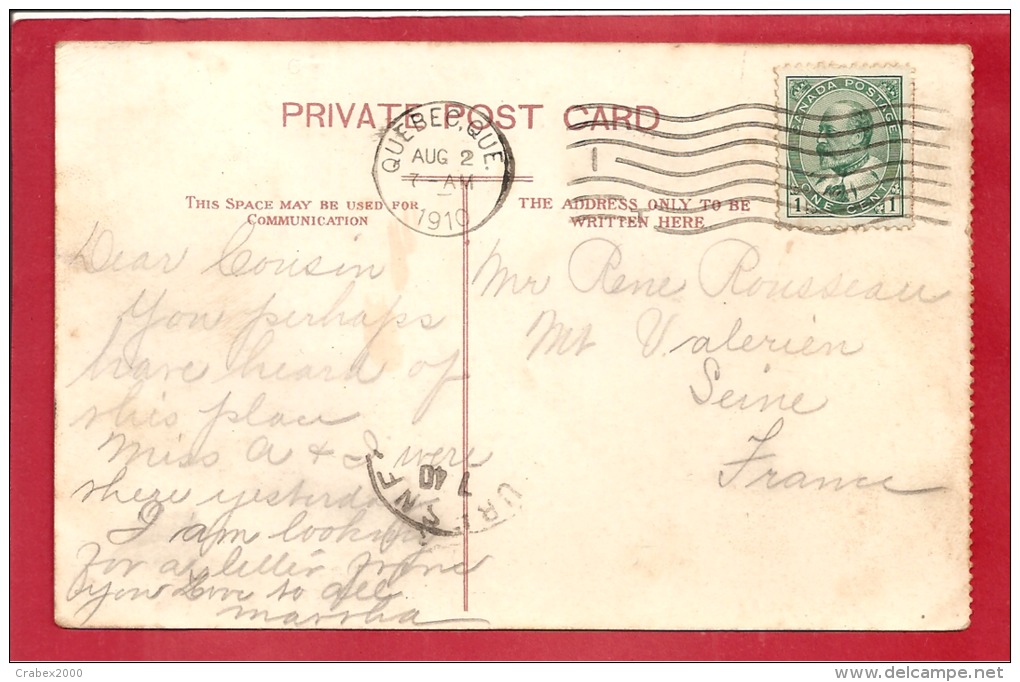 PRIVATE POST CARD
QUEBEC, QUE.
AUG 2
7-AM
1910
CANADA POSTAGE
1 ONE CENT 1
THIS SPACE MAY BE USED FOR
COMMUNICATION
THE ADDRESS ONLY TO BE
WRITTEN HERE
Dear Cousin
You perhaps
have heard of
this place
Miss A & I were
there yesterday
I am looking
for a letter from
you Love to all
Martha
Mr Rene Rousseau
Mt Valerien
Seine
France
7 40
Crabex2000
www.delcampe.net